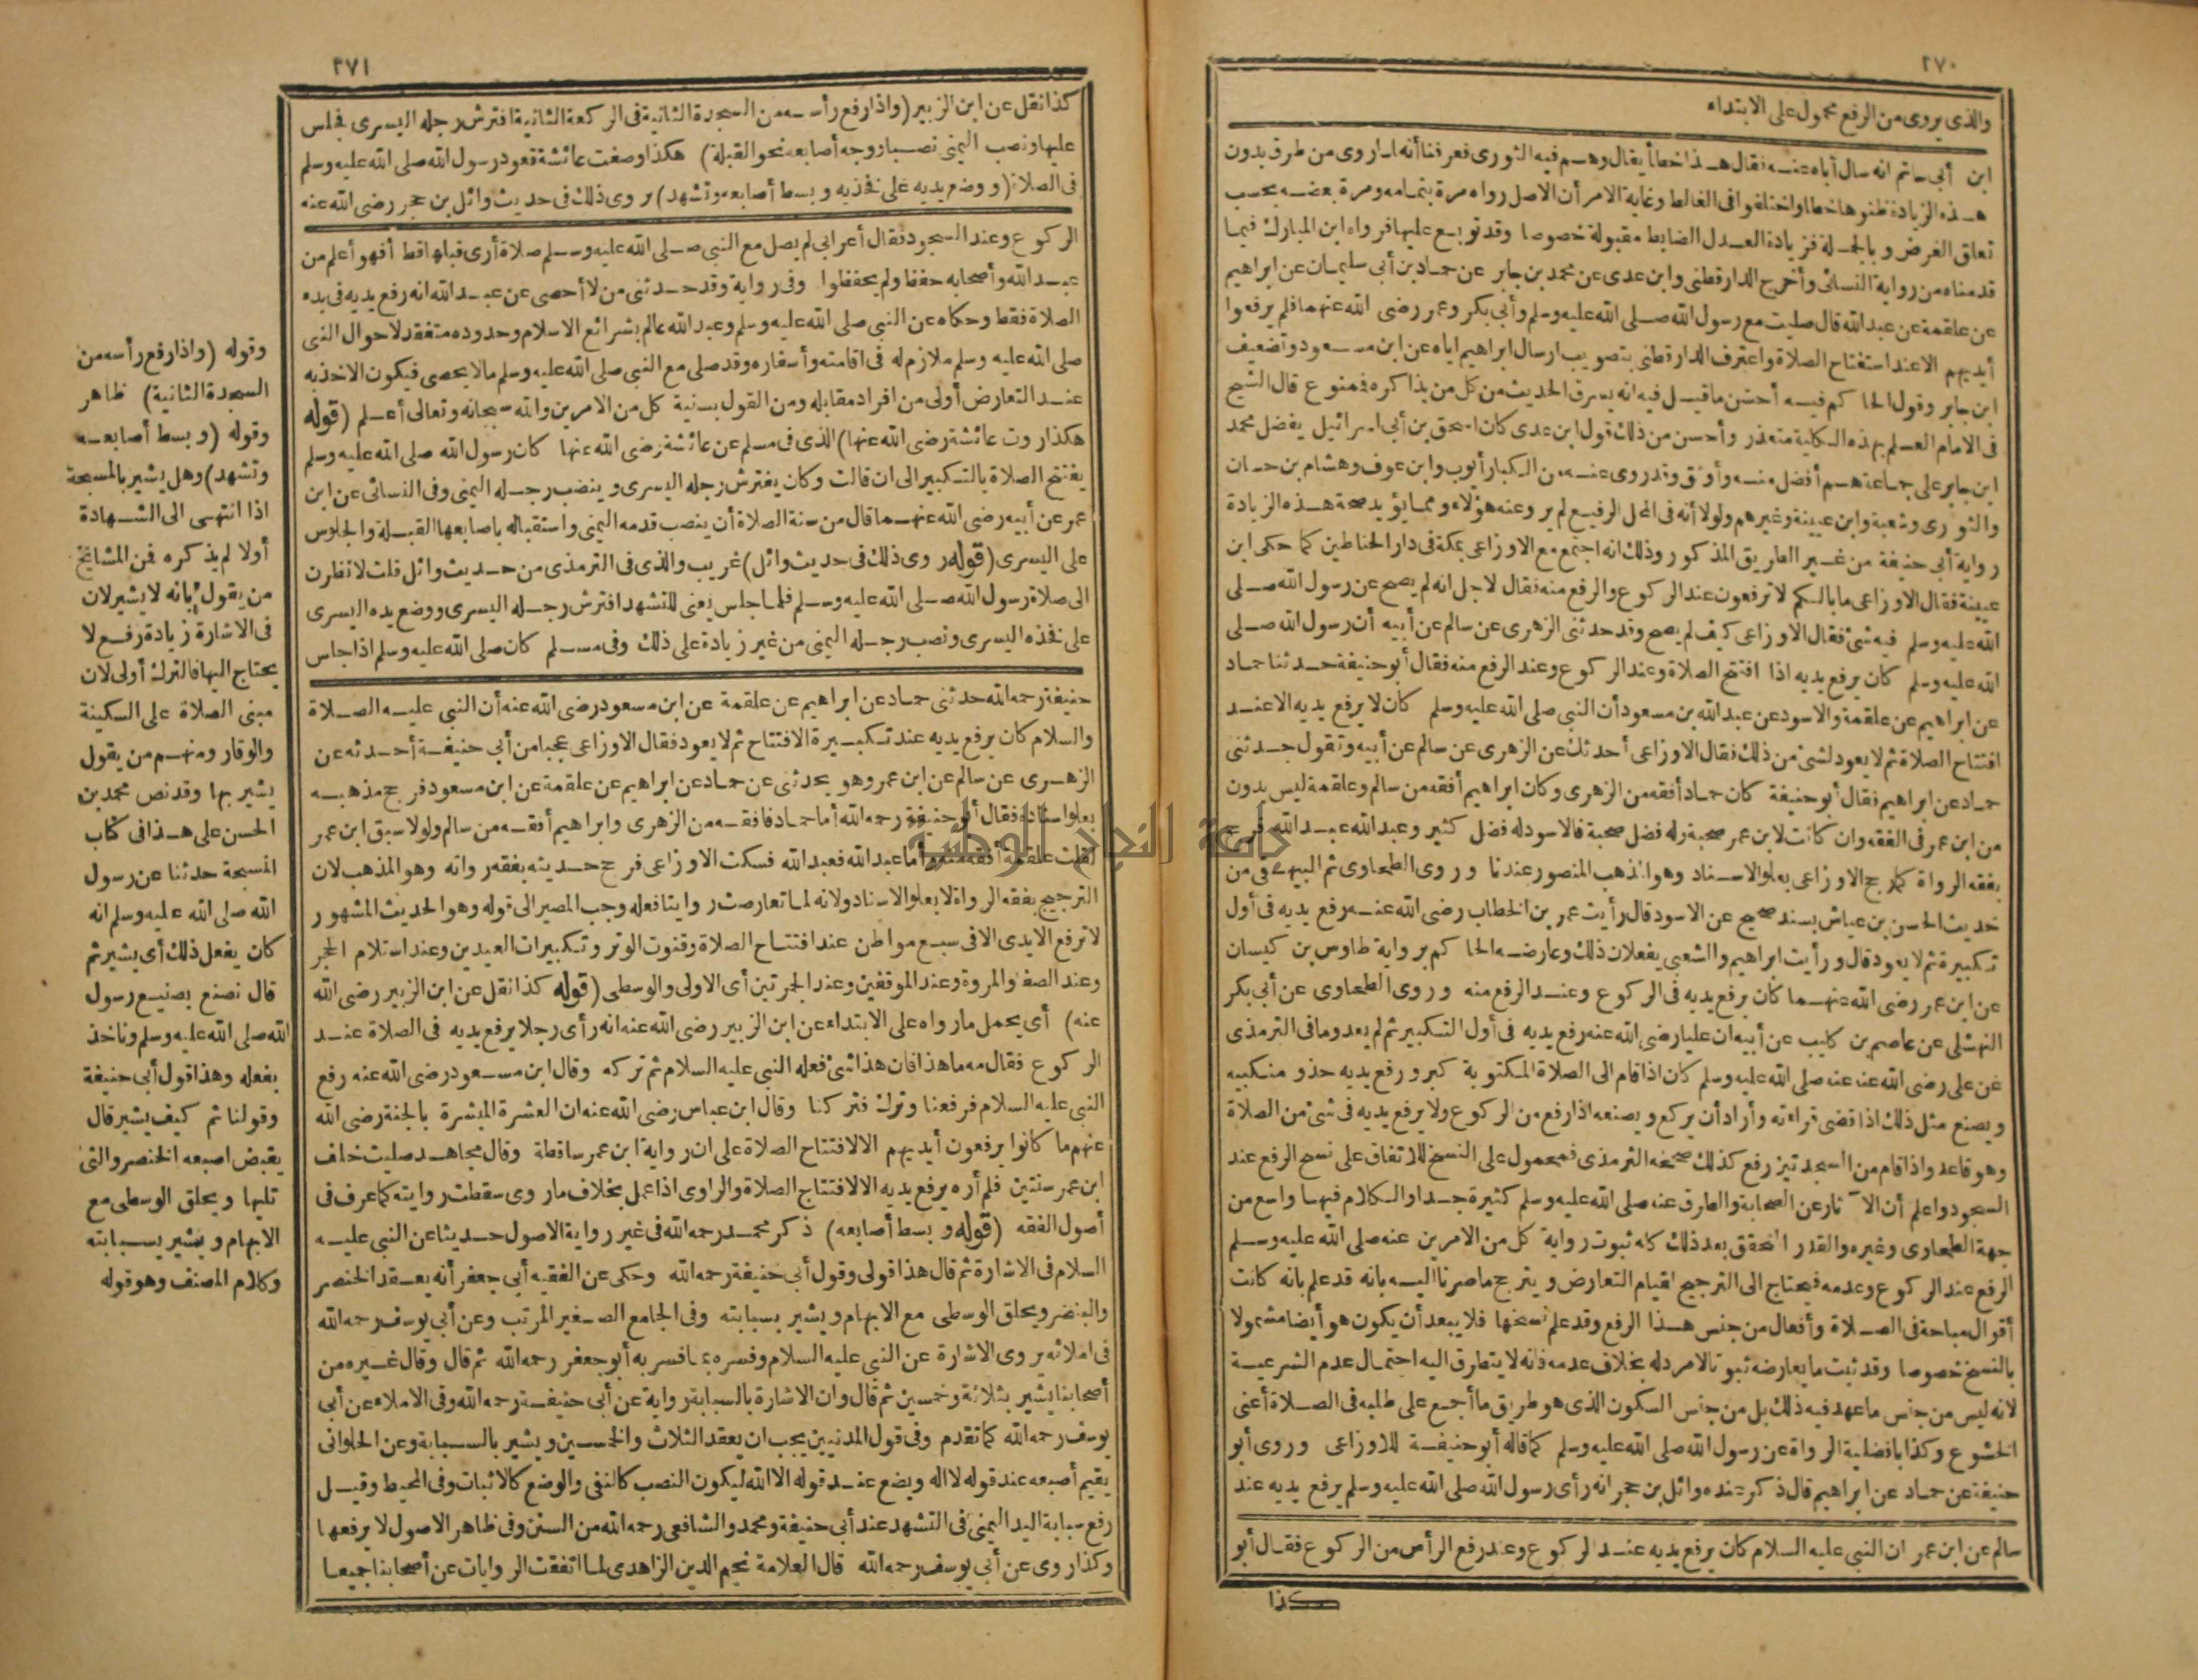 ٢٧٠
والذى يروى من الرفع محمول على الابتداء
ابن أبى حاتم انه سأل أباه عنه فقال هذا خطأ يقال وهم فيه الثورى فعرفنا أنه لما روى من طرق بدون
هذه الزيادة ظنوها خطأ واختلفوا فى الغالط وغاية الامر أن الاصل رواه مرة بتمامه ومرة بعضه بحسب
تعلق الغرض وبالجملة فزيادة العدل الضابط مقبولة خصوصا وقد توبع عليها فرواه ابن المبارك فيما
قدمناه من رواية النسائى وأخرج الدارقطنى وابن عدى عن محمد بن جابر عن حماد بن أبى سليمان عن ابراهيم
عن علقمة عن عبدالله قال صليت مع رسول الله صلى الله عليه وسلم وأبى بكر وعمر رضى الله عنهما فلم يرفعوا
أيديهم الاعند استفتاح الصلاة واعترف الدارقطنى بتصويب ارسال ابراهيم اياه عن ابن مسعود وتضعيف
ابن جابر وقول الحاكم فيه أحسن ماقيل فيه انه يسرق الحديث من كل من يذاكره فممنوع قال الشيخ
فى الامام العلم بهذه الكلية متعذر وأحسن من ذلك قول ابن عدى كان اسحق بن أبى اسرائيل يفضل محمد
ابن جابر على جماعة هم أفضل منه وأوثق وقد روى عنه من الكبار أيوب وابن عوف وهشام بن حسان
والثورى وشعبة وابن عيينة وغيرهم ولولا أنه فى المحل الرفيع لم يرو عنه هؤلاء ومما يؤيد صحة هذه الزيادة
رواية أبى حنيفة من غير الطريق المذكور وذلك انه اجتمع مع الاوزاعى بمكة فى دار الحناطين كما حكى ابن
عيينة فقال الاوزاعى ما بالكم لا ترفعون عند الركوع والرفع منه فقال لاجل انه لم يصح عن رسول الله صلى
الله عليه وسلم فيه شئ فقال الاوزاعى كيف لم يصح وقد حدثنى الزهرى عن سالم عن أبيه أن رسول الله صلى
الله عليه وسلم كان يرفع يديه اذا افتتح الصلاة وعند الركوع وعند الرفع منه فقال أبوحنيفة حدثنا حماد
عن ابراهيم عن علقمة والاسود عن عبدالله بن مسعود أن النبى صلى الله عليه وسلم كان لا يرفع يديه الاعند
افتتاح الصلاة ثم لا يعود لشئ من ذلك فقال الاوزاعى أحدثك عن الزهرى عن سالم عن أبيه وتقول حدثنى
حماد عن ابراهيم فقال أبوحنيفة كان حماد أفقه من الزهرى وكان ابراهيم أفقه من سالم وعلقمة ليس بدون
من ابن عمر فى الفقه وان كانت لابن عمر صحبة وله فضل صحبة فالاسود له فضل كثير وعبدالله عبدالله فرجح
بفقه الرواة كما رجح الاوزاعى بعلو الاسناد وهو المذهب المنصور عندنا وروى الطحاوى ثم البيهقى من
حديث الحسن بن عياش بسند صحيح عن الاسود قال رأيت عمر بن الخطاب رضى الله عنه رفع يديه فى أول
تكبيرة ثم لا يعود قال ورأيت ابراهيم والشعبى يفعلان ذلك وعارضه الحاكم برواية طاوس بن كيسان
عن ابن عمر رضى الله عنهما كان يرفع يديه فى الركوع وعند الرفع منه وروى الطحاوى عن أبى بكر
النهشلى عن عاصم بن كليب عن أبيه ان عليا رضى الله عنه رفع يديه فى أول التكبير ثم لم يعد وما فى الترمذى
عن على رضى الله عنه عنه صلى الله عليه وسلم كان اذا قام الى الصلاة المكتوبة كبر ورفع يديه حذو منكبيه
ويصنع مثل ذلك اذا قضى قراءته وأراد أن يركع ويصنعه اذا رفع من الركوع ولا يرفع يديه فى شئ من الصلاة
وهو قاعد واذا قام من السجدتين رفع كذلك صححه الترمذى فمحمول على النسخ للاتفاق على نسخ الرفع عند
السجود واعلم أن الآثار عن الصحابة والطرق عنه صلى الله عليه وسلم كثيرة جدا والكلام فيها واسع من
جهة الطحاوى وغيره والقدر المتحقق بعد ذلك كله ثبوت رواية كل من الامرين عنه صلى الله عليه وسلم
الرفع عند الركوع وعدمه فيحتاج الى الترجيح لقيام التعارض ويترجح ما صرنا اليه بانه قد علم بانه كانت
أقوال مباحة فى الصلاة وأفعال من جنس هذا الرفع وقد علم نسخها فلا يبعد أن يكون هو أيضا مشمولا
بالنسخ خصوصا وقد ثبت ما يعارضه ثبوتا لامرد له بخلاف عدمه فانه لا يتطرق اليه احتمال عدم الشرعية
لانه ليس من جنس ما عهد فيه ذلك بل من جنس السكون الذى هو طريق ما أجمع على طلبه فى الصلاة أعنى
الخشوع وكذا بافضلية الرواة عن رسول الله صلى الله عليه وسلم كما قاله أبوحنيفة للاوزاعى وروى أبو
حنيفة عن حماد عن ابراهيم قال ذكر عنده وائل بن حجر انه رأى رسول الله صلى الله عليه وسلم يرفع يديه عند
سالم عن ابن عمر ان النبى عليه السلام كان يرفع يديه عند الركوع وعند رفع الرأس من الركوع فقال أبو
كذا
٢٧١
كذا نقل عن ابن الزبير (واذا رفع رأسه من السجدة الثانية فى الركعة الثانية افترش رجله اليسرى فجلس
عليها ونصب اليمنى نصبا ووجه أصابعه نحو القبلة) هكذا وصفت عائشة قعود رسول الله صلى الله عليه وسلم
فى الصلاة (ووضع يديه على فخذيه وبسط أصابعه وتشهد) يروى ذلك فى حديث وائل بن حجر رضى الله عنه
الركوع وعند السجود فقال أعرابى لم يصل مع النبى صلى الله عليه وسلم صلاة أرى قبلها قط أفهو أعلم من
عبدالله وأصحابه حفظ ولم يحفظوا وفى رواية وقد حدثنى من لا أحصى عن عبدالله انه رفع يديه فى بدء
الصلاة فقط وحكاه عن النبى صلى الله عليه وسلم وعبدالله عالم بشرائع الاسلام وحدوده متفقد لاحوال النبى
صلى الله عليه وسلم ملازم له فى اقامته وأسفاره وقد صلى مع النبى صلى الله عليه وسلم مالا يحصى فيكون الاخذ به
عند التعارض أولى من افراد مقابله ومن القول بسنية كل من الامرين والله سبحانه وتعالى أعلم (قوله
هكذا روت عائشة رضى الله عنها) الذى فى مسلم عن عائشة رضى الله عنها كان رسول الله صلى الله عليه وسلم
يفتتح الصلاة بالتكبير الى ان قالت وكان يفترش رجله اليسرى وينصب رجله اليمنى وفى النسائى عن ابن
عمر عن أبيه رضى الله عنهما قال من سنة الصلاة أن ينصب قدمه اليمنى واستقباله باصابعها القبلة والجلوس
على اليسرى (قوله روى ذلك فى حديث وائل) غريب والذى فى الترمذى من حديث وائل قلت لانظرن
الى صلاة رسول الله صلى الله عليه وسلم فلما جلس يعنى للتشهد افترش رجله اليسرى ووضع يده اليسرى
على فخذه اليسرى ونصب رجله اليمنى من غير زيادة على ذلك وفى مسلم كان صلى الله عليه وسلم اذا جلس
حنيفة رحمه الله حدثنى حماد عن ابراهيم عن علقمة عن ابن مسعود رضى الله عنه أن النبى عليه الصلاة
والسلام كان يرفع يديه عند تكبيرة الافتتاح ثم لا يعود فقال الاوزاعى عجبا من أبى حنيفة أحدثه عن
الزهرى عن سالم عن ابن عمر وهو يحدثنى عن حماد عن ابراهيم عن علقمة عن ابن مسعود فرجح مذهبه
بعلو اسناده فقال أبوحنيفة رحمه الله أما حماد فافقه من الزهرى وابراهيم أفقه من سالم ولولا سبق ابن عمر
لقلت علقمة أفقه منه وأما عبدالله فعبدالله فسكت الاوزاعى فرجح حديثه بفقه رواته وهو المذهب لان
الترجيح بفقه الرواة لا بعلو الاسناد ولانه لما تعارضت روايتا فعله وجب المصير الى قوله وهو الحديث المشهور
لا ترفع الايدى الا فى سبع مواطن عند افتتاح الصلاة وقنوت الوتر وتكبيرات العيدين وعند استلام الحجر
وعند الصفا والمروة وعند الموقفين وعند الجمرتين أى الاولى والوسطى (قوله كذا نقل عن ابن الزبير رضى الله
عنه) أى يحمل ما رواه على الابتداء عن ابن الزبير رضى الله عنه انه رأى رجلا يرفع يديه فى الصلاة عند
الركوع فقال مه ما هذا فان هذا شئ فعله النبى عليه السلام ثم تركه وقال ابن مسعود رضى الله عنه رفع
النبى عليه السلام فرفعنا وترك فتركنا وقال ابن عباس رضى الله عنه ان العشرة المبشرة بالجنة رضى الله
عنهم ما كانوا يرفعون أيديهم الا لافتتاح الصلاة على ان رواية ابن عمر ساقطة وقال مجاهد صليت خلف
ابن عمر سنتين فلم أره يرفع يديه الا لافتتاح الصلاة والراوى اذا عمل بخلاف ما روى سقطت روايته كما عرف فى
أصول الفقه (قوله وبسط أصابعه) ذكر محمد رحمه الله فى غير رواية الاصول حديثا عن النبى عليه
السلام فى الاشارة ثم قال هذا قولى وقول أبى حنيفة رحمه الله وحكى عن الفقيه أبى جعفر أنه يعقد الخنصر
والبنصر ويحلق الوسطى مع الابهام ويشير بسبابته وفى الجامع الصغير المرتب وعن أبى يوسف رحمه الله
فى املائه يروى الاشارة عن النبى عليه السلام وفسره بما فسر به أبوجعفر رحمه الله ثم قال وقال غيره من
أصحابنا يشير بثلاثة وخمسين ثم قال وان الاشارة بالسبابة رواية عن أبى حنيفة رحمه الله وفى الاملاء عن أبى
يوسف رحمه الله كما تقدم وفى قول المدنيين يجب ان يعقد الثلاث والخمسين ويشير بالسبابة وعن الحلوانى
يقيم أصبعه عند قوله لا اله ويضع عند قوله الا الله ليكون النصب كالنفى والوضع كالاثبات وفى المحيط وقيل
رفع سبابة اليد اليمنى فى التشهد عند أبى حنيفة ومحمد والشافعى رحمه الله من السنن وفى ظاهر الاصول لا يرفعها
وكذا روى عن أبى يوسف رحمه الله قال العلامة نجم الدين الزاهدى لما اتفقت الروايات عن أصحابنا جميعا
وقوله (واذا رفع رأسه من
السجدة الثانية) ظاهر
وقوله (وبسط أصابعه
وتشهد) وهل يشير بالمسبحة
اذا انتهى الى الشهادة
أولا لم يذكره فمن المشايخ
من يقول بانه لا يشير لان
فى الاشارة زيادة رفع لا
يحتاج اليها فالترك أولى لان
مبنى الصلاة على السكينة
والوقار ومنهم من يقول
يشير بها وقد نص محمد بن
الحسن على هذا فى كتاب
المسبحة حدثنا عن رسول
الله صلى الله عليه وسلم انه
كان يفعل ذلك أى يشير ثم
قال نصنع بصنيع رسول
الله صلى الله عليه وسلم وناخذ
بفعله وهذا قول أبى حنيفة
وقولنا ثم كيف يشير قال
يقبض اصبعه الخنصر والتى
تليها ويحلق الوسطى مع
الابهام ويشير بسبابته
وكلام المصنف وهو قوله
جامعة النجاح الوطنية